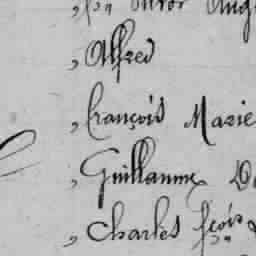 , Alfred
, François Marie
, Guillaume
, Charles fçois